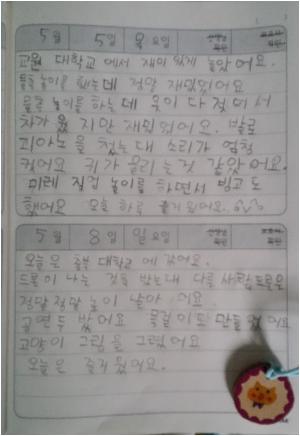 5월 5일 목요일
교원 대학교 에서 재미 있게 놀았 어요.
놀이를 했는데 정말 재밌었어요
물총 놀이를 하는데 옷이 다 젖어서
차가 웠 지만 재밌었어요. 발로
피아노 을 쳤는대 소리가 엄청
컸어요 귀가 울리는 것 같았어요.
미래 직업 놀이를 하면서 빙고도
했어요 오늘 하루 즐거웠어요.
5월 8일 일요일
오늘은 충북 대학교 에 갔어요.
드론이 나는 것을 봤는대 다른 사람 드론은
정말 정말 높이 날아 어요.
공연 두 봤어요 목걸이도 만들었어요
고양이 그림 을 그렸어요
오늘은 즐거웠어요.